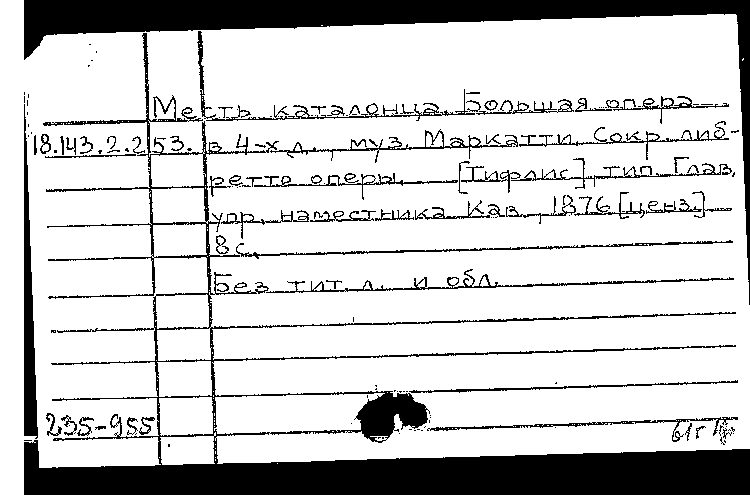 Месть каталонца. Большая опера
18.143.2.253. в 4-х д., муз. Маркатти. Сокр. либ-
ретто оперы. [Тифлис], тип. Глав.
упр. наместника Кав., 1876 [ценз.]
8 с.
Без тит. л. и обл.
235-955
61г